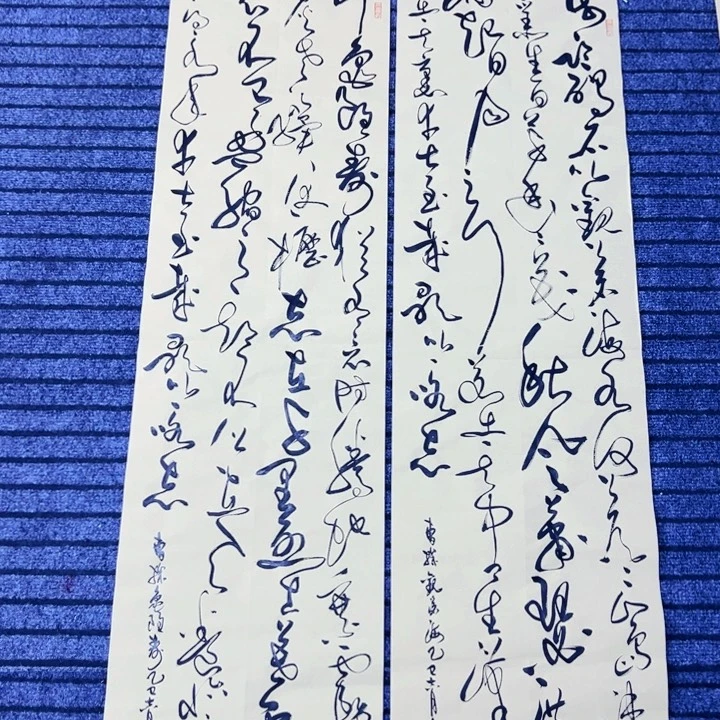 临碣石以观沧海水何澹澹山岛竦
丛生百草丰茂秋风萧瑟洪
涌起日月之行若出其中星汉
出其里幸甚至哉歌以咏志
曹操观沧海乙巳六月
龟虽寿犹有竟时腾蛇乘雾终
灰老骥伏枥志在千里烈士暮
不已盈缩之期不但在天养怡
得永年幸甚至哉歌以咏志
曹操龟虽寿乙巳六月